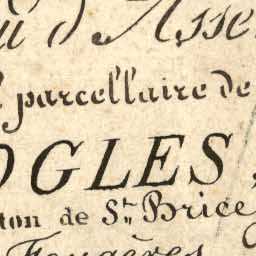 d'Asse
parcellaire de
OGLES,
ton de St. Brice
Fougères